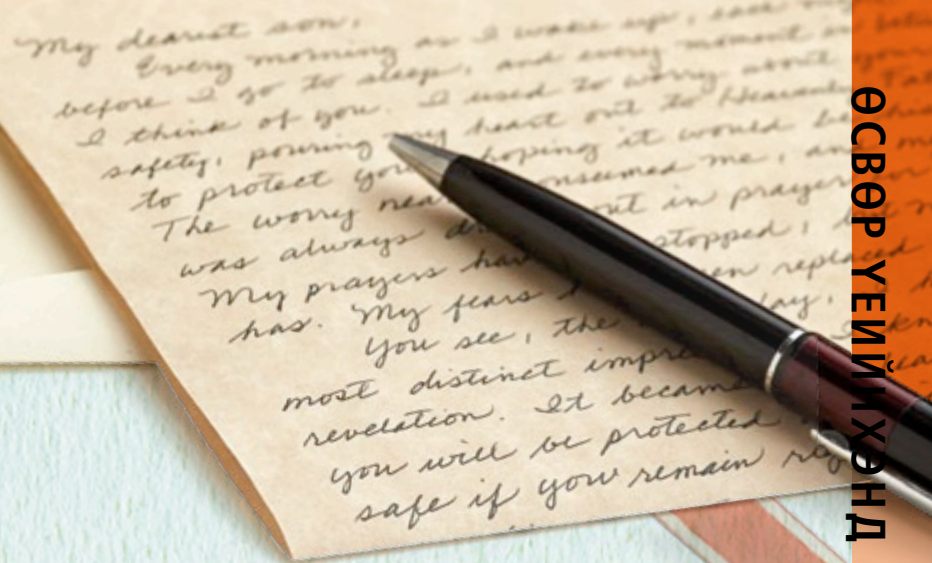 My dearest son,
Every morning as I wake up, each
before I go to sleep, and every moment in
I think of you. I used to worry about your
safety, pouring my heart out to Heavenly
to protect you, hoping it would be
The worry nea consumed me, and
was always out in prayer
My prayers ha stopped, b
has. My fears replaced
You see, the day, I
most distinct impre
revelation. It became
you will be protected
safe if you remain
ӨСВӨР ҮЕИЙХЭНД